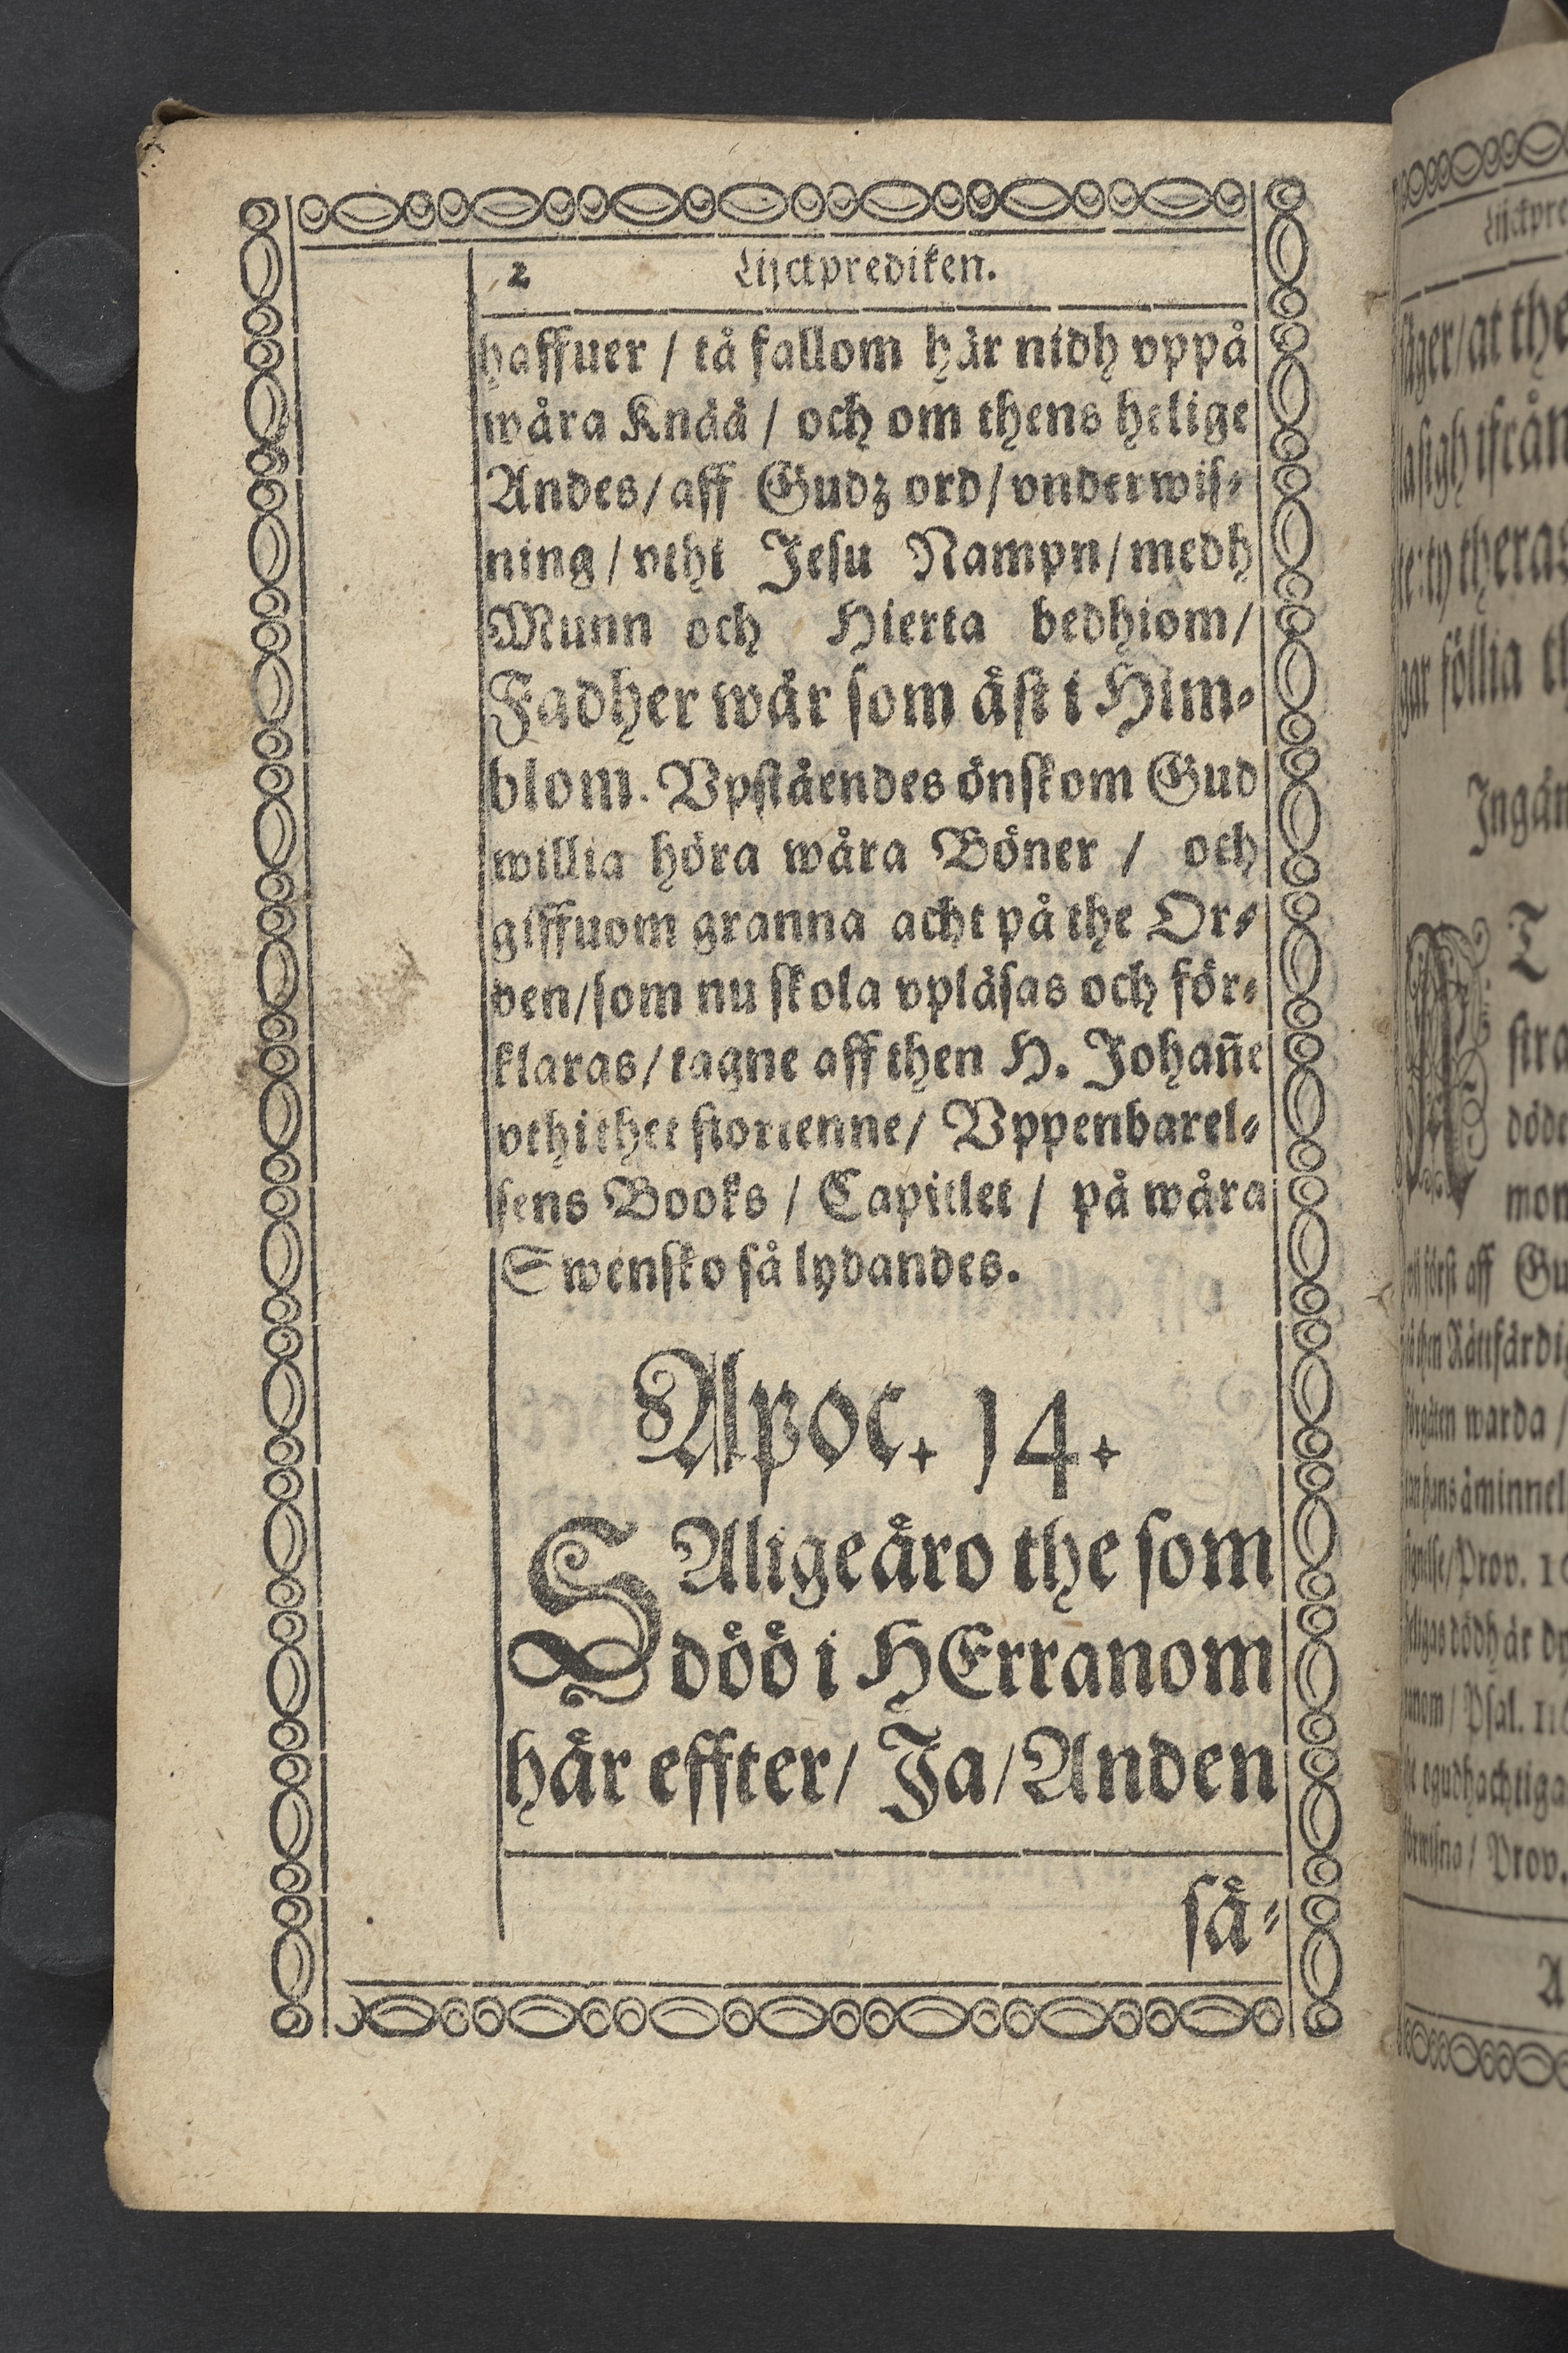 2 Lijckprediken.
haffuer / tå fallom här nidh vppå
wåra Knää / och om thens helige
Andes / aff Gudz ord / vnderwis⸗
ning / vthi Jesu Nampn / medh
Munn och Hierta bedhiom /
Fadher wår som äst i Him⸗
blom. Vpståendes önskom Gud
willia höra wåra Böner / och
giffuom granna acht på the Or⸗
den / som nu skola vpläsas och för⸗
klaras / tagne aff then H. Johañe
vthi thet fiortenne / Vppenbarel⸗
sens Books / Capitlet / på wåra
Swensko så lydandes.
Apoc. 14.
SAlige äro the som
döö i HErranom
här effter / Ja / Anden
sä⸗
Lijckpre
säger / at the
la sigh ifrån
te: ty theras
gar föllia th
Ingån
AT
stra
döde
mon
och först aff Gu
så then Rättfärdig
förgäten warda /
hans åminnel
Prov. 10
heligas dödh är
Psal. 11
ogudhachtiga
Prov.
A